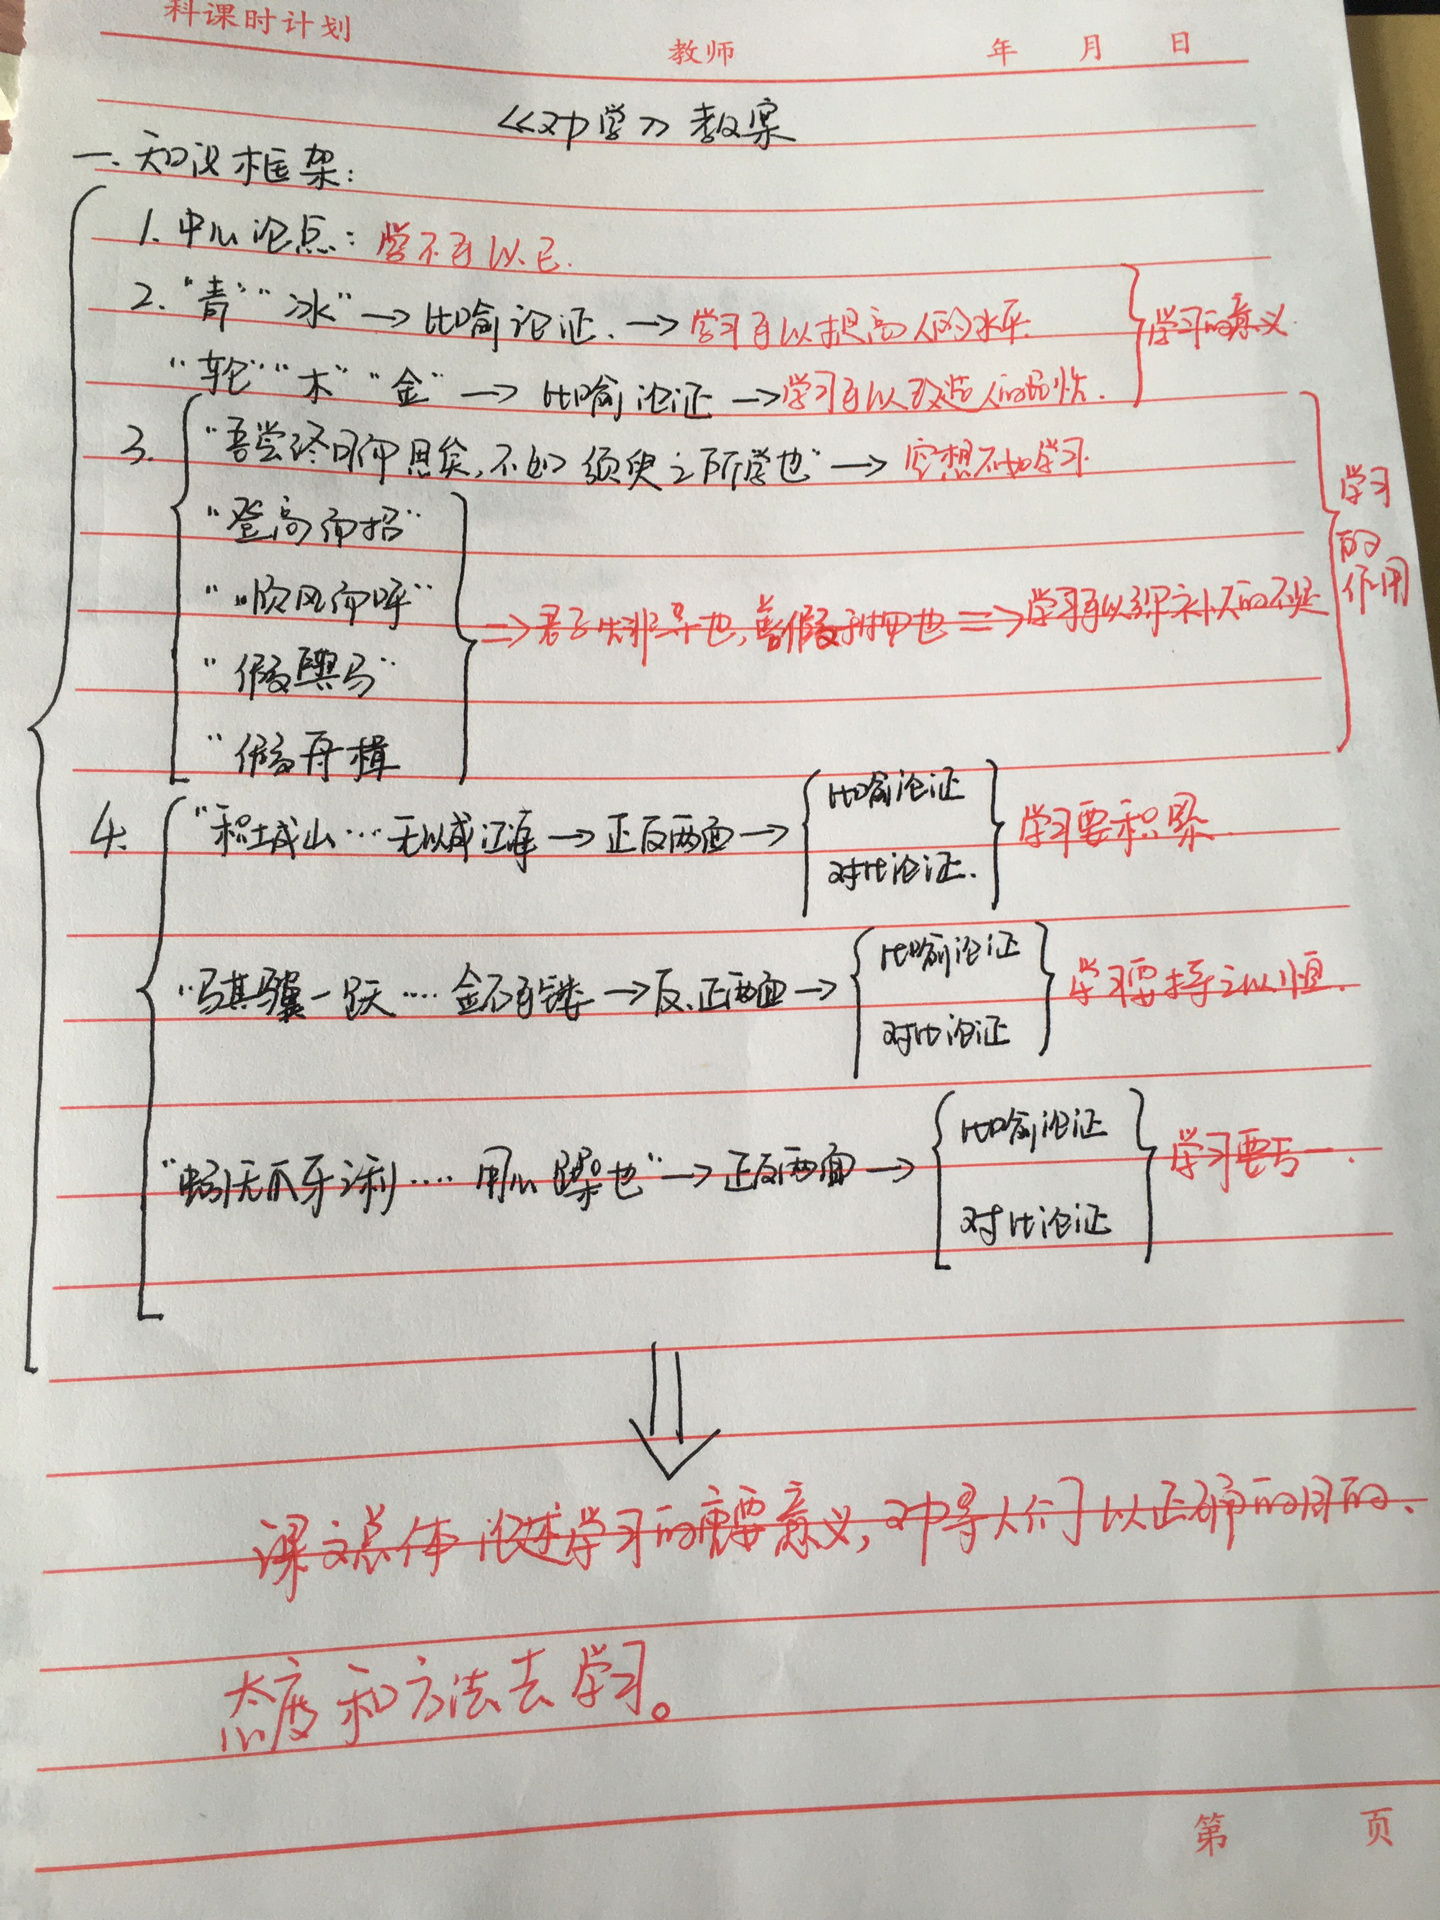 科课时计划
教师 年 月 日
《劝学》教案
一. 知识框架:
1. 中心论点: 学不可以已.
2. "青" "冰" → 比喻论证. → 学习可以提高人的水平.
"轮" "木" "金" → 比喻论证 → 学习可以改造人的品性.
学习的意义.
3. "吾尝终日而思矣, 不如须臾之所学也" → 空想不如学习.
"登高而招"
"顺风而呼"
"假舆马"
"假舟楫
⇒ 君子生非异也, 善假于物也 ⇒ 学习可以弥补人的不足
学习的作用
4. "积土成山… 无以成江海 → 正反两面 → 比喻论证 对比论证. 学习要积累.
"骐骥一跃 …. 金石可镂 → 反.正两面 → 比喻论证 对比论证 学习要持之以恒.
"蚓无爪牙之利 …. 用心躁也" → 正反两面 → 比喻论证 对比论证 学习要专一.
课文总体论述学习的重要意义, 劝导人们以正确的目的、
态度和方法去学习。
第 页